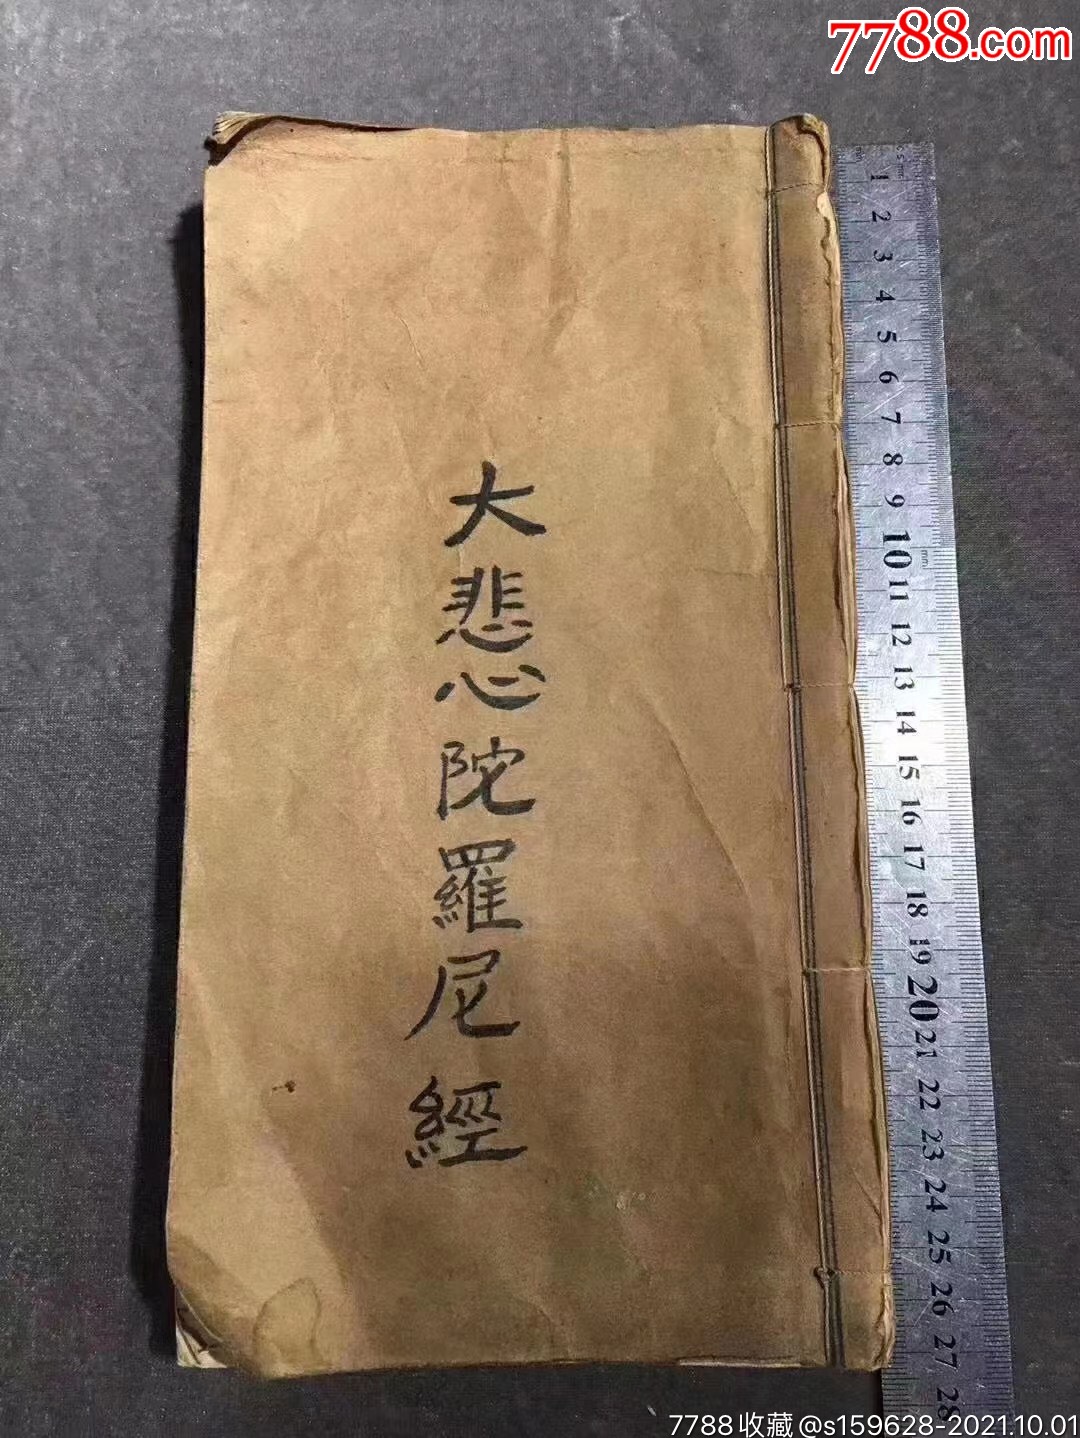 7788.com
大悲心陀羅尼經
0.5mm
mm
1
2
3
4
5
6
7
8
9
10
mm
11
12
13
14
15
16
17
18
19
20
21
22
23
24
25
26
27
28
7788收藏@s159628-2021.10.01